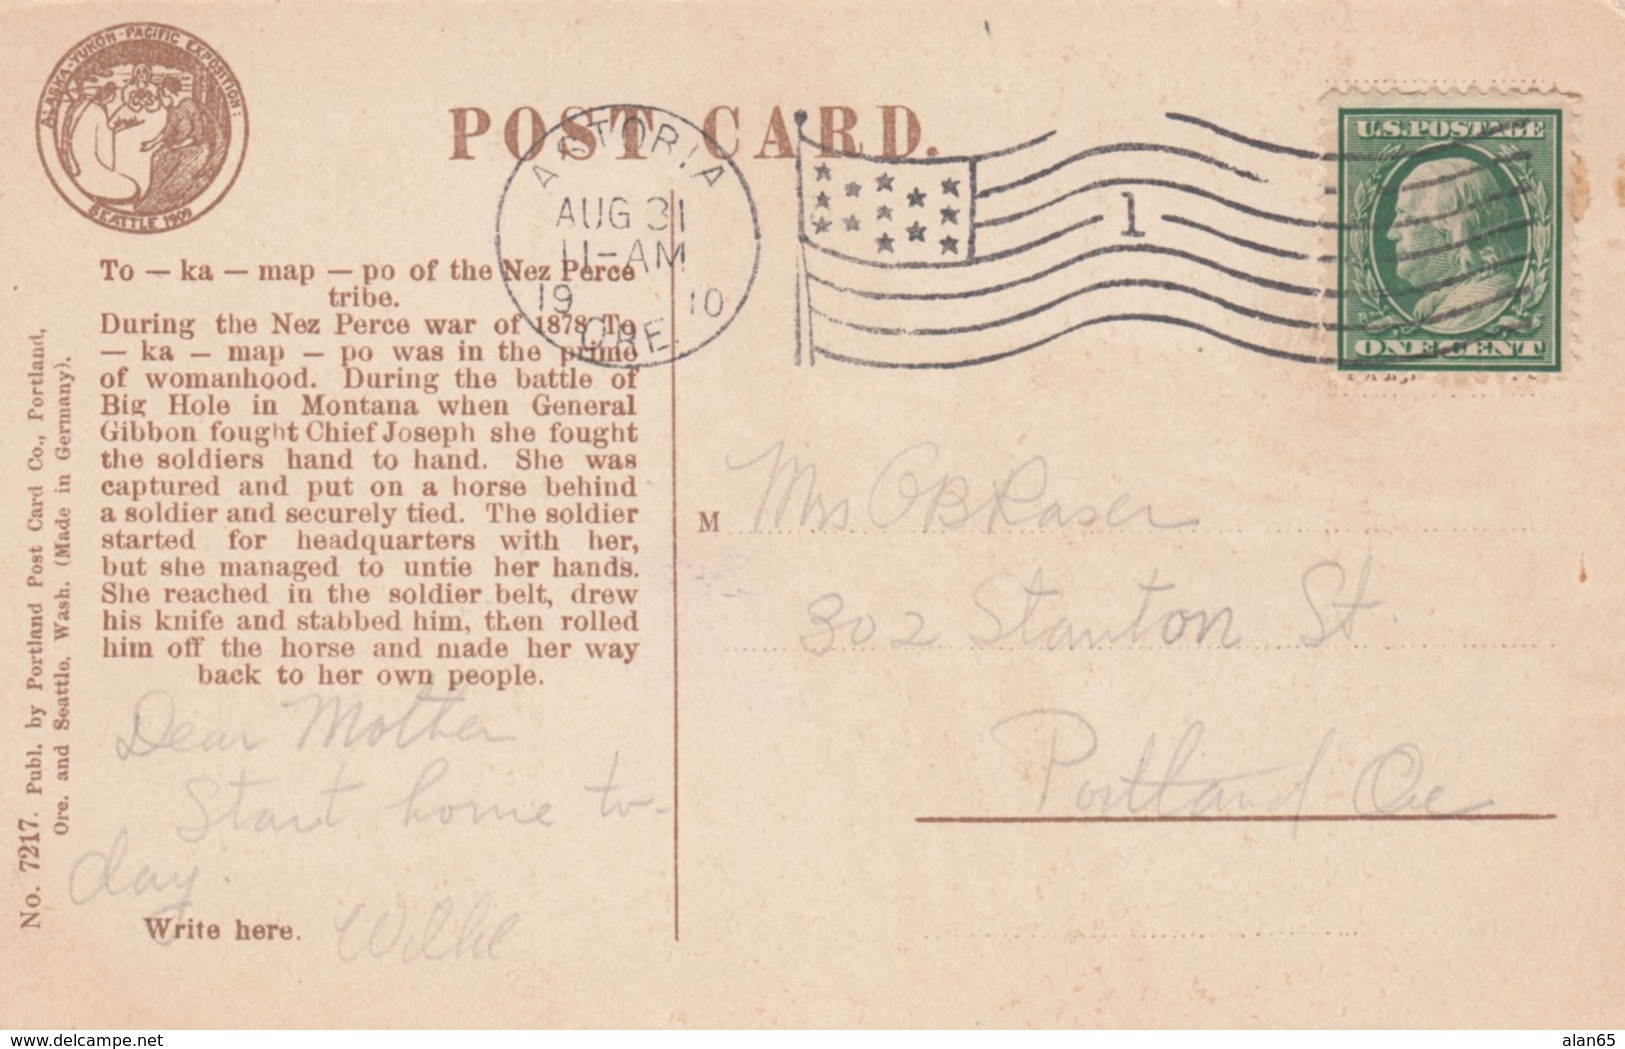 ALASKA-YUKON-PACIFIC EXPOSITION:
SEATTLE 1909
POST CARD.
ASTORIA
AUG 31
11-AM
19 10
ORE.
1
U.S. POSTAGE
ONE CENT
To — ka — map — po of the Nez Perce
tribe.
During the Nez Perce war of 1878 To
— ka — map — po was in the prime
of womanhood. During the battle of
Big Hole in Montana when General
Gibbon fought Chief Joseph she fought
the soldiers hand to hand. She was
captured and put on a horse behind
a soldier and securely tied. The soldier
started for headquarters with her,
but she managed to untie her hands.
She reached in the soldier belt, drew
his knife and stabbed him, then rolled
him off the horse and made her way
back to her own people.
Dear Mother
Start home to-
day.
Write here.
No. 7217. Publ. by Portland Post Card Co., Portland,
Ore. and Seattle, Wash. (Made in Germany).
M Mrs O B Raser
302 Stanton St.
Portland Ore
delcampe.net
alan65